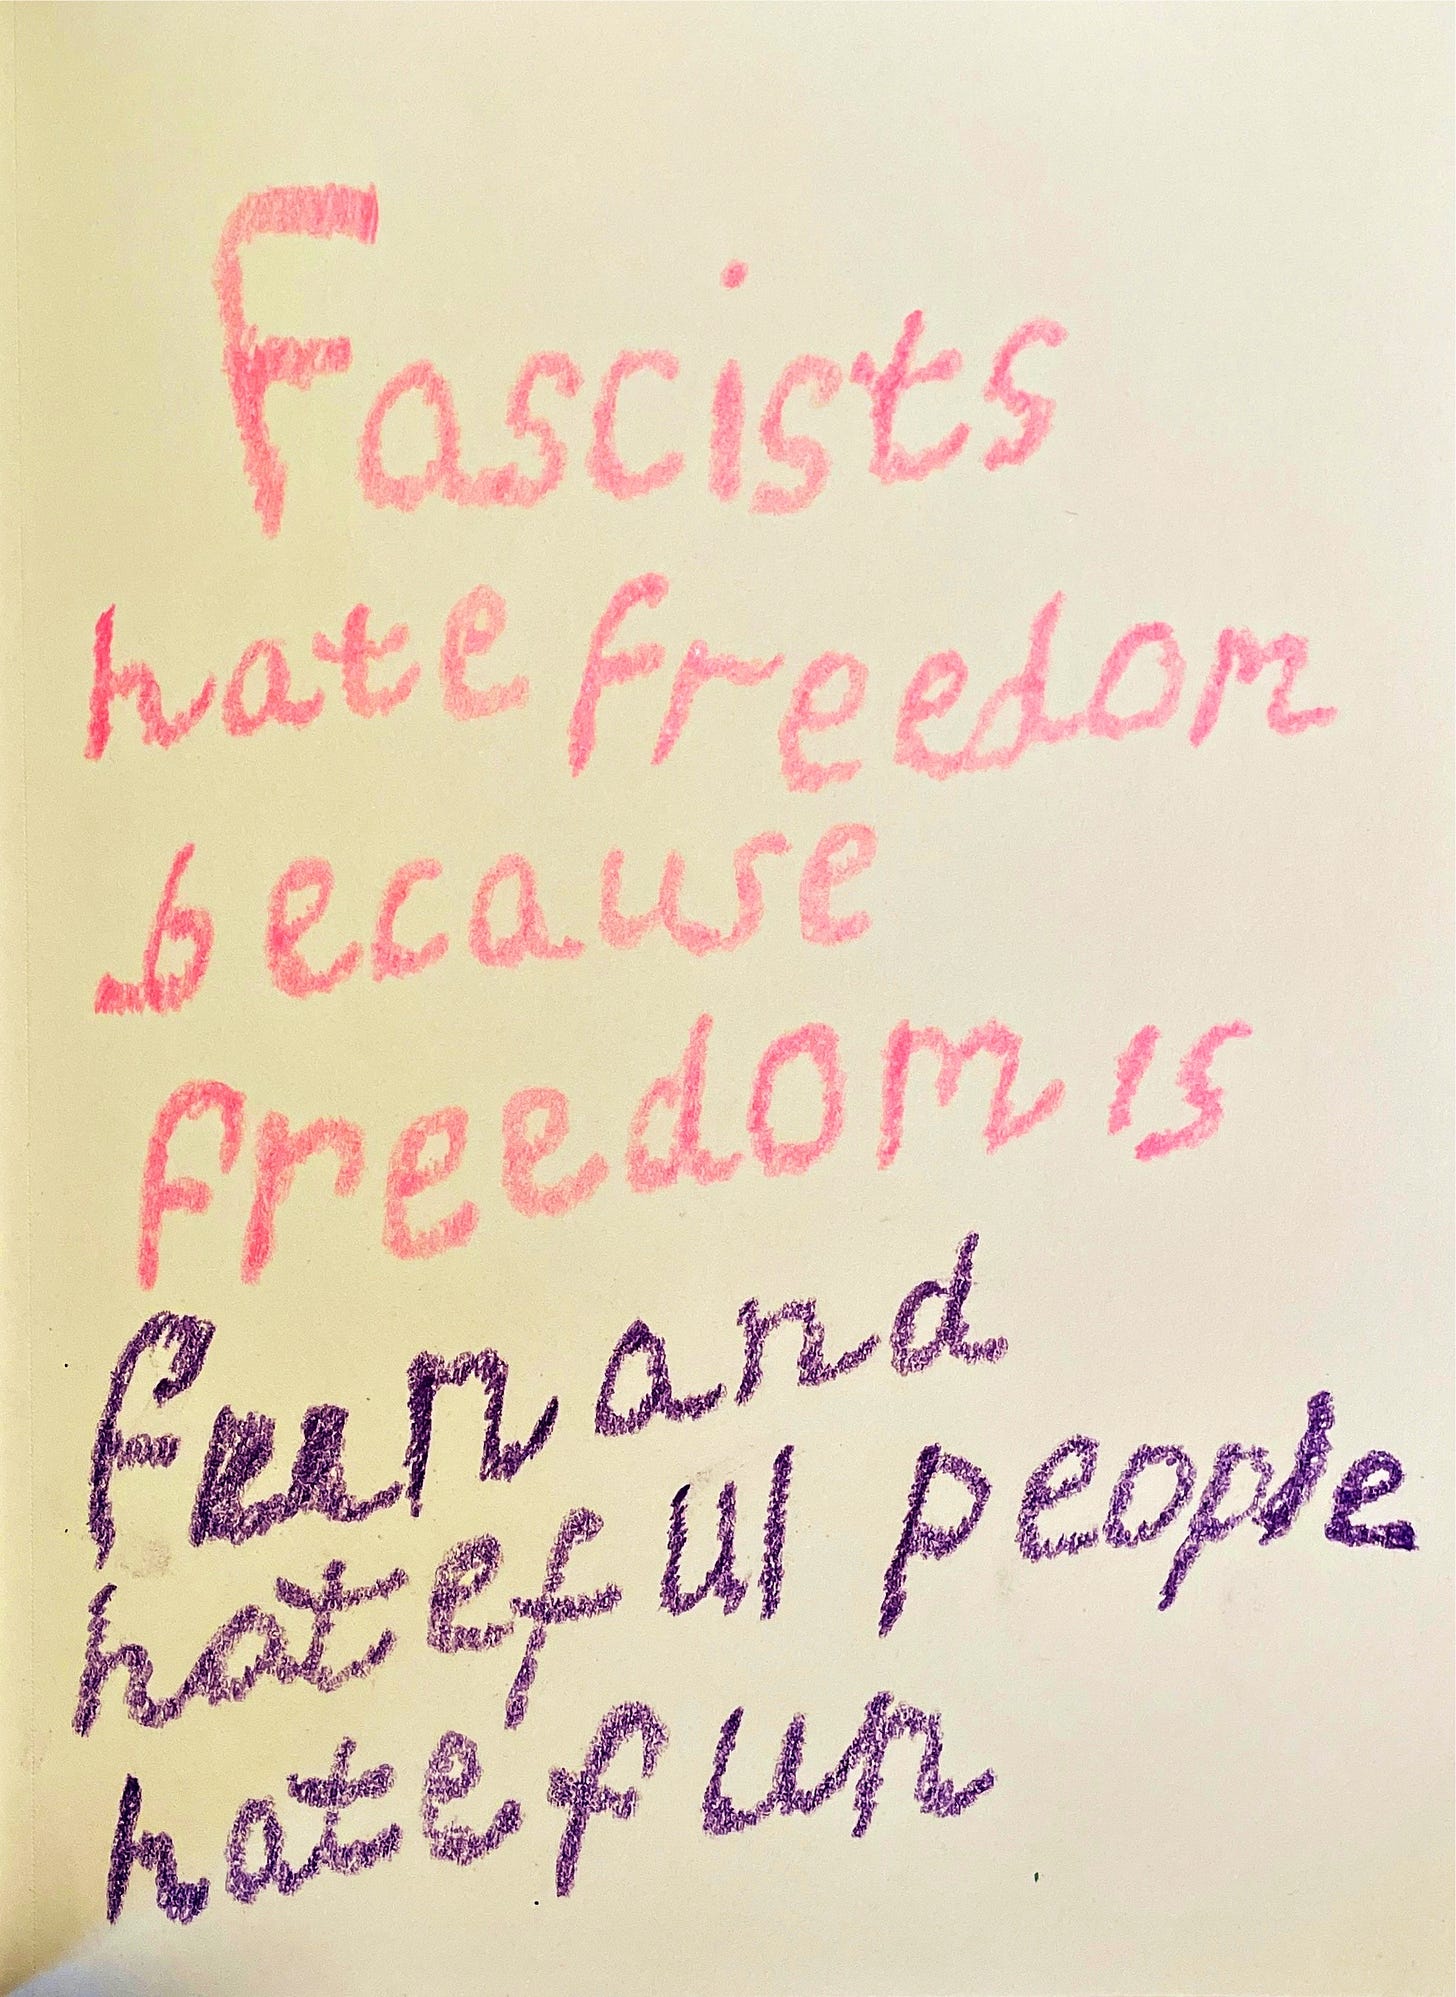 Fascists
hate freedom
because
freedom is
fun and
hateful people
hate fun